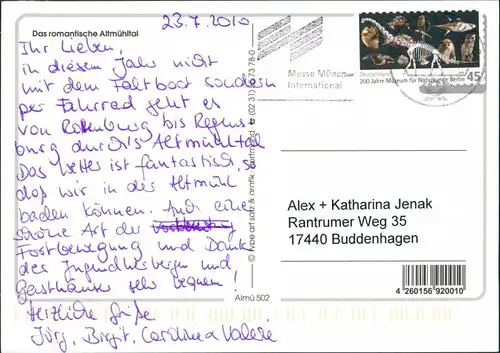 Das romantische Altmühltal
23.7.2010
Ihr Lieben,
in diesem Jahr nicht
mit dem Faltboot sondern
per Fahrrad geht es
von Rothenburg bis Regens-
burg durch's Altmühltal
Das Wetter ist fantastisch, so
daß wir in der Altmühl
baden können. Auch eine
schöne Art der
Fortbewegung und Dank
der Jugendherbergen und
Gasthäuser sehr bequem!
Herzliche Grüße
Jörg, Birgit, Carolina
Almü 502
Messe München
International
Deutschland
200 Jahre Museum für Naturkunde Berlin
45
Alex + Katharina Jenak
Rantrumer Weg 35
17440 Buddenhagen
4 260156 920010